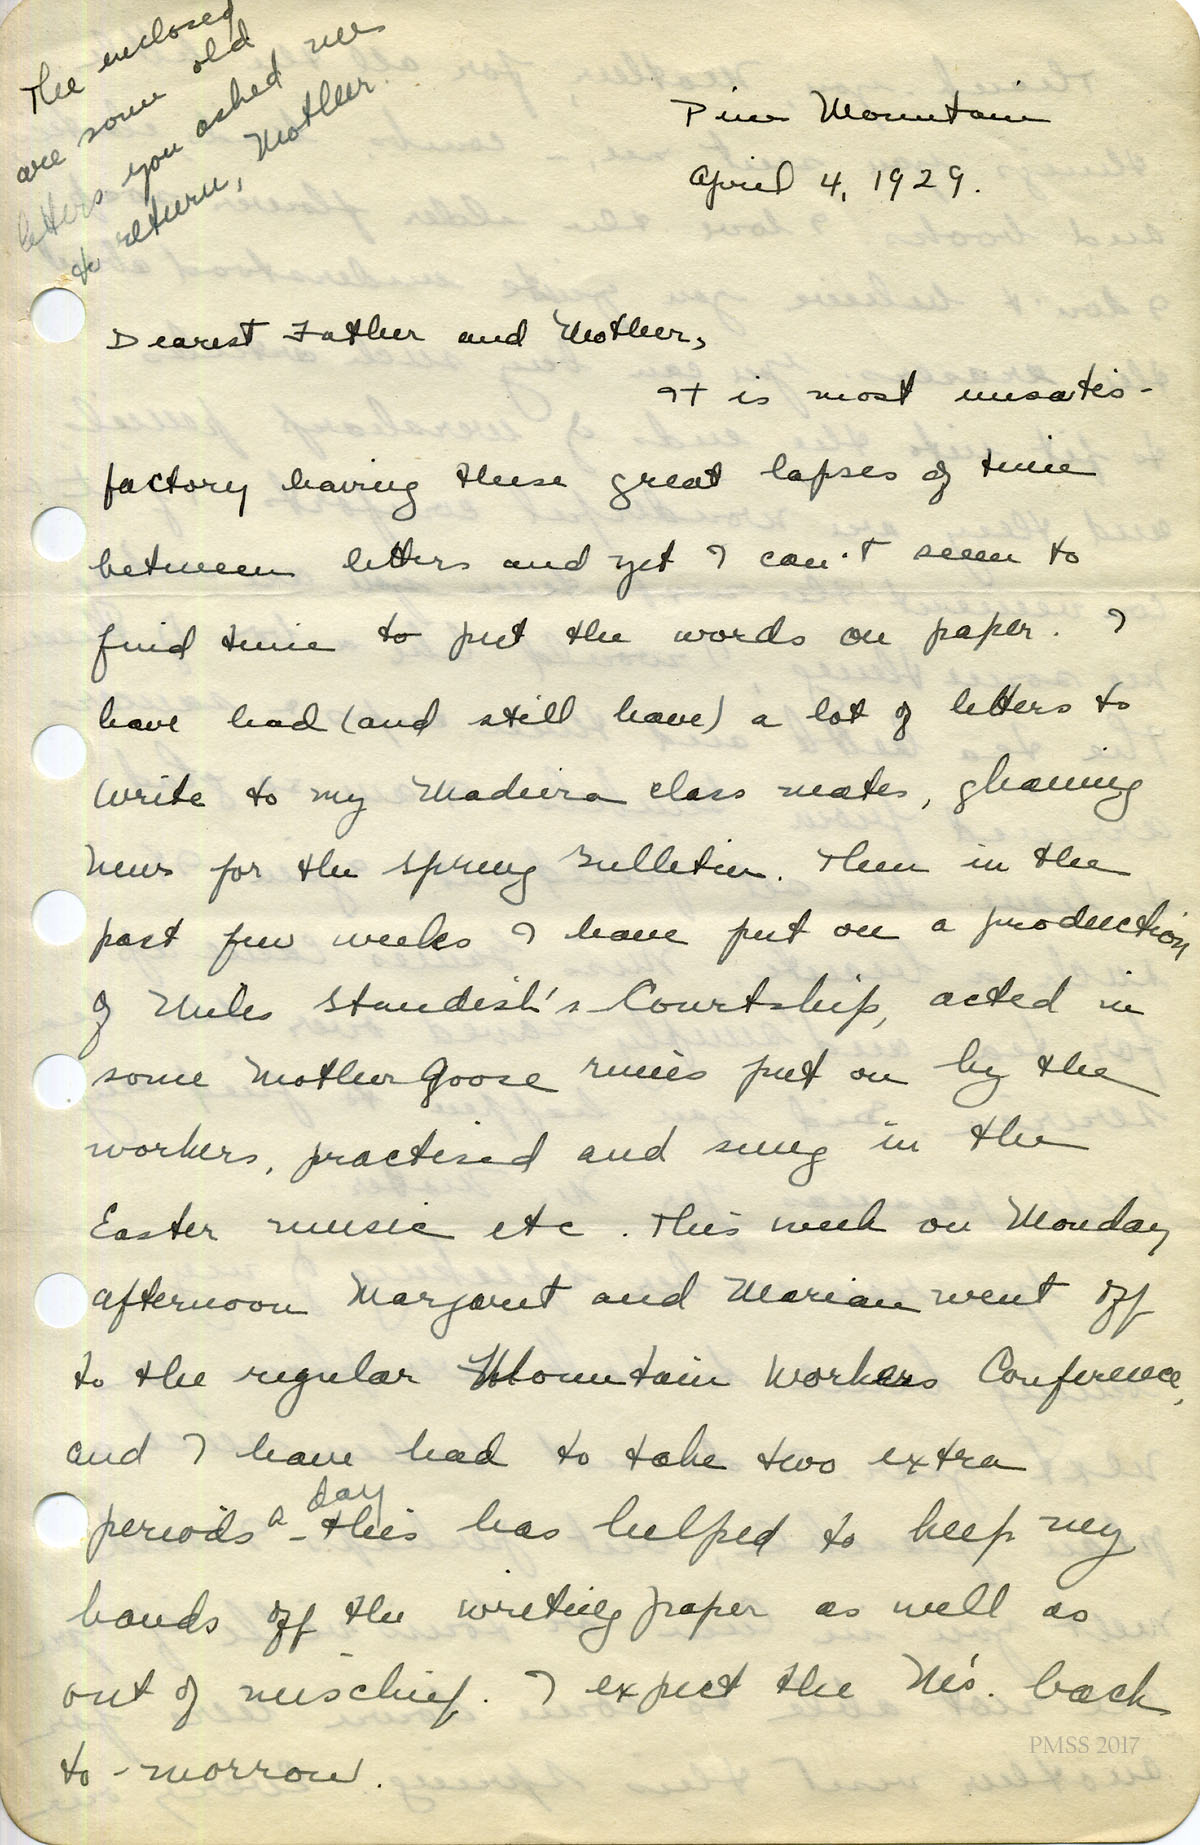 The enclosed
are some old
letters you asked me
to return, Mother.
Pine Mountain
April 4, 1929.
Dearest Father and Mother,
It is most unsatis-
factory having these great lapses of time
between letters and yet I can't seem to
find time to put the words on paper. I
have had (and still have) a lot of letters to
write to my Madeira class mates, gleaning
news for the Spring Bulletin. Then in the
past few weeks I have put on a production
of Miles Standish's Courtship, acted in
some Mother Goose put on by the
workers, practised and sung in the
Easter music etc. This week on Monday
afternoon Margaret and Marian went off
to the regular Mountain Workers Conference,
and I have had to take two extra
periods a day - this has helped to keep my
hands off the writing paper as well as
out of mischief. I expect the M's. back
to-morrow.
PMSS 2017